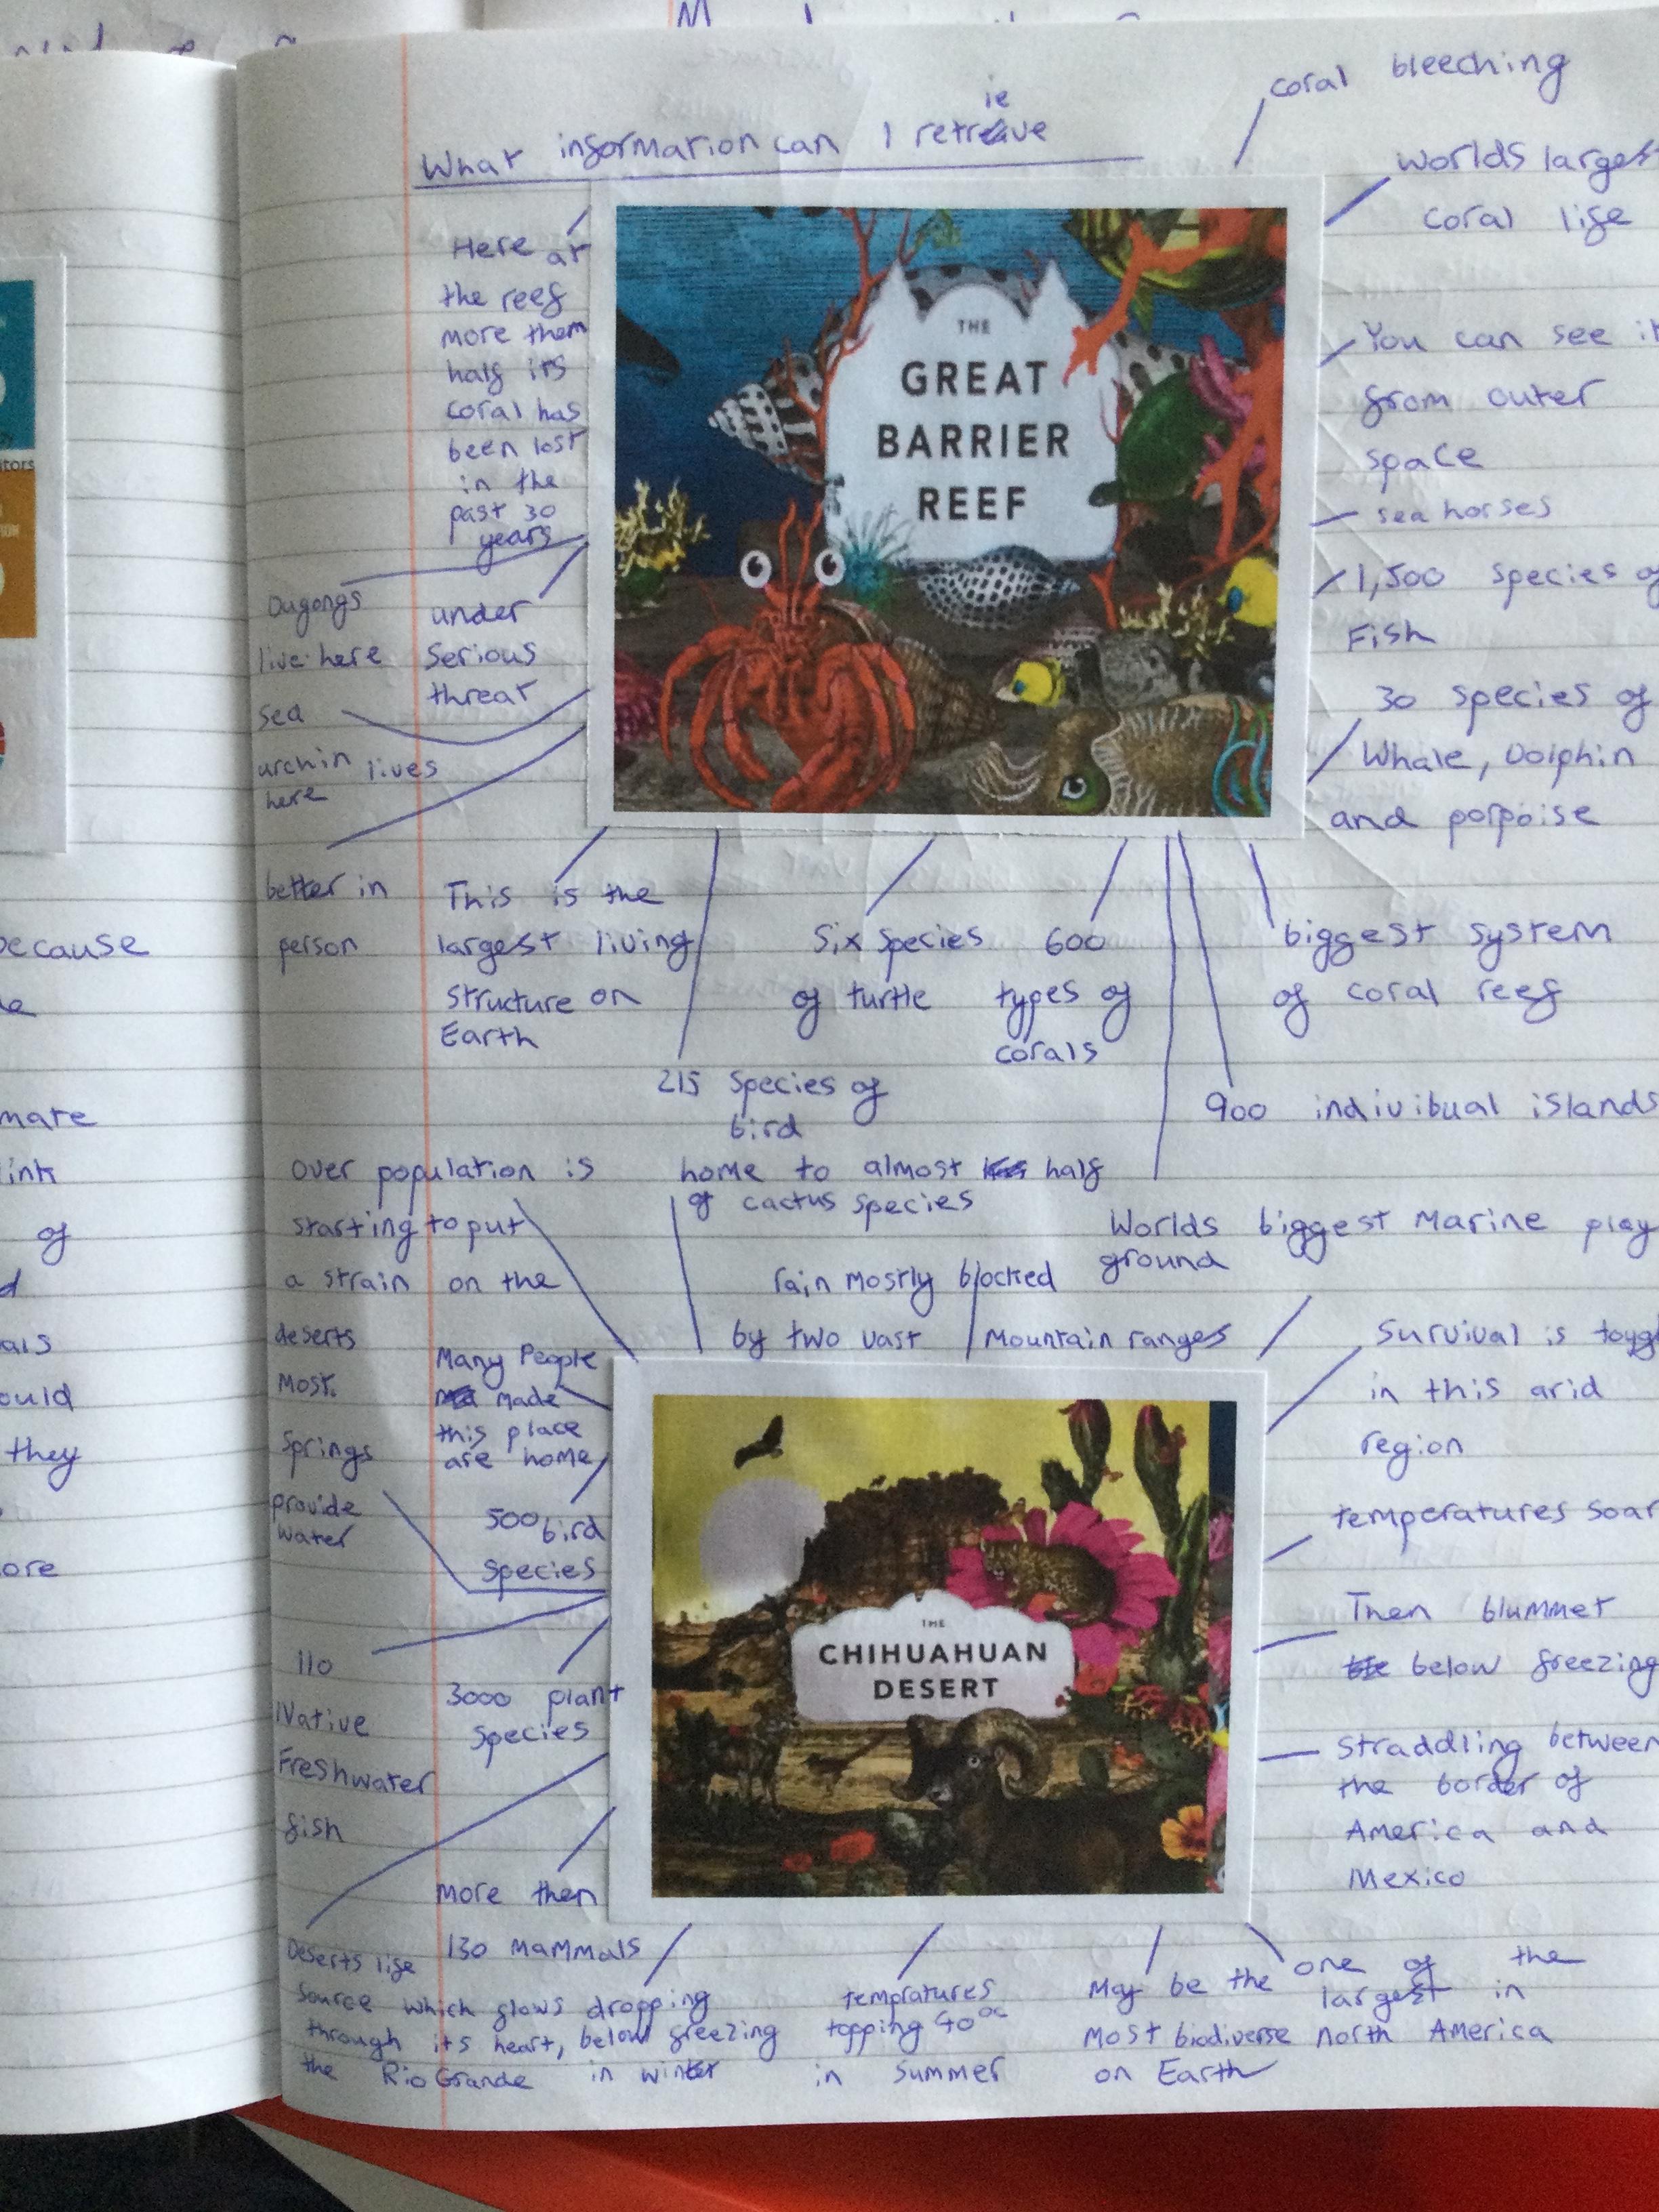 What information can I retrieve
coral bleeching
Worlds largest
coral life
Here at
the reef
more them
half its
coral has
been lost
in the
past 30
years
THE
GREAT
BARRIER
REEF
You can see it
from outer
space
sea horses
1,500 species of
Fish
30 species of
Whale, Dolphin
and porpoise
Dugongs
live here
under
Serious
threat
sea
urchin lives
here
better in
person
This is the
largest living
structure on
Earth
Six species
of turtle
600
types of
corals
biggest system
of coral reef
215 species of
bird
900 indivibual islands
Worlds biggest Marine play
ground
over population is
starting to put
a strain on the
deserts
most.
home to almost half
of cactus species
rain mostly blocked
by two vast Mountain ranges
Many People
made
this place
are home
Springs
provide
water
500 bird
species
110
Native
Freshwater
fish
3000 plant
species
more then
130 mammals
THE
CHIHUAHUAN
DESERT
Survival is tough
in this arid
region
temperatures soar
Then blummet
below freezing
Straddling between
the border of
America and
Mexico
Deserts life
source which flows
through its heart,
the Rio Grande
dropping
below freezing
in winter
tempratures
topping 40°c
in summer
May be the
most biodiverse
on Earth
one of the
largest in
north America
because
mate
link
of
als
ould
they
ore
itors